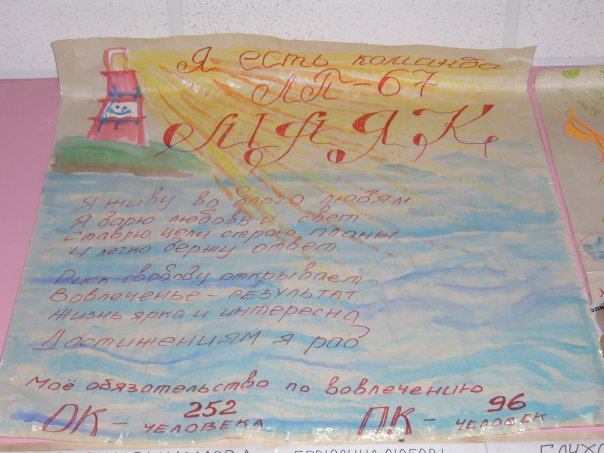 Я есть команда
ЛП-67
МАЯК
Я живу во благо людям
Я дарю любовь и свет
Ставлю цели строю планы
И легко держу ответ
Риск свободу открывает
Вовлеченье - РЕЗУЛЬТАТ
Жизнь ярка и интересна
Достижениям я рад
Моё обязательство по вовлечению
ОК - 252 ЧЕЛОВЕКА
ПК - 96 ЧЕЛОВЕК